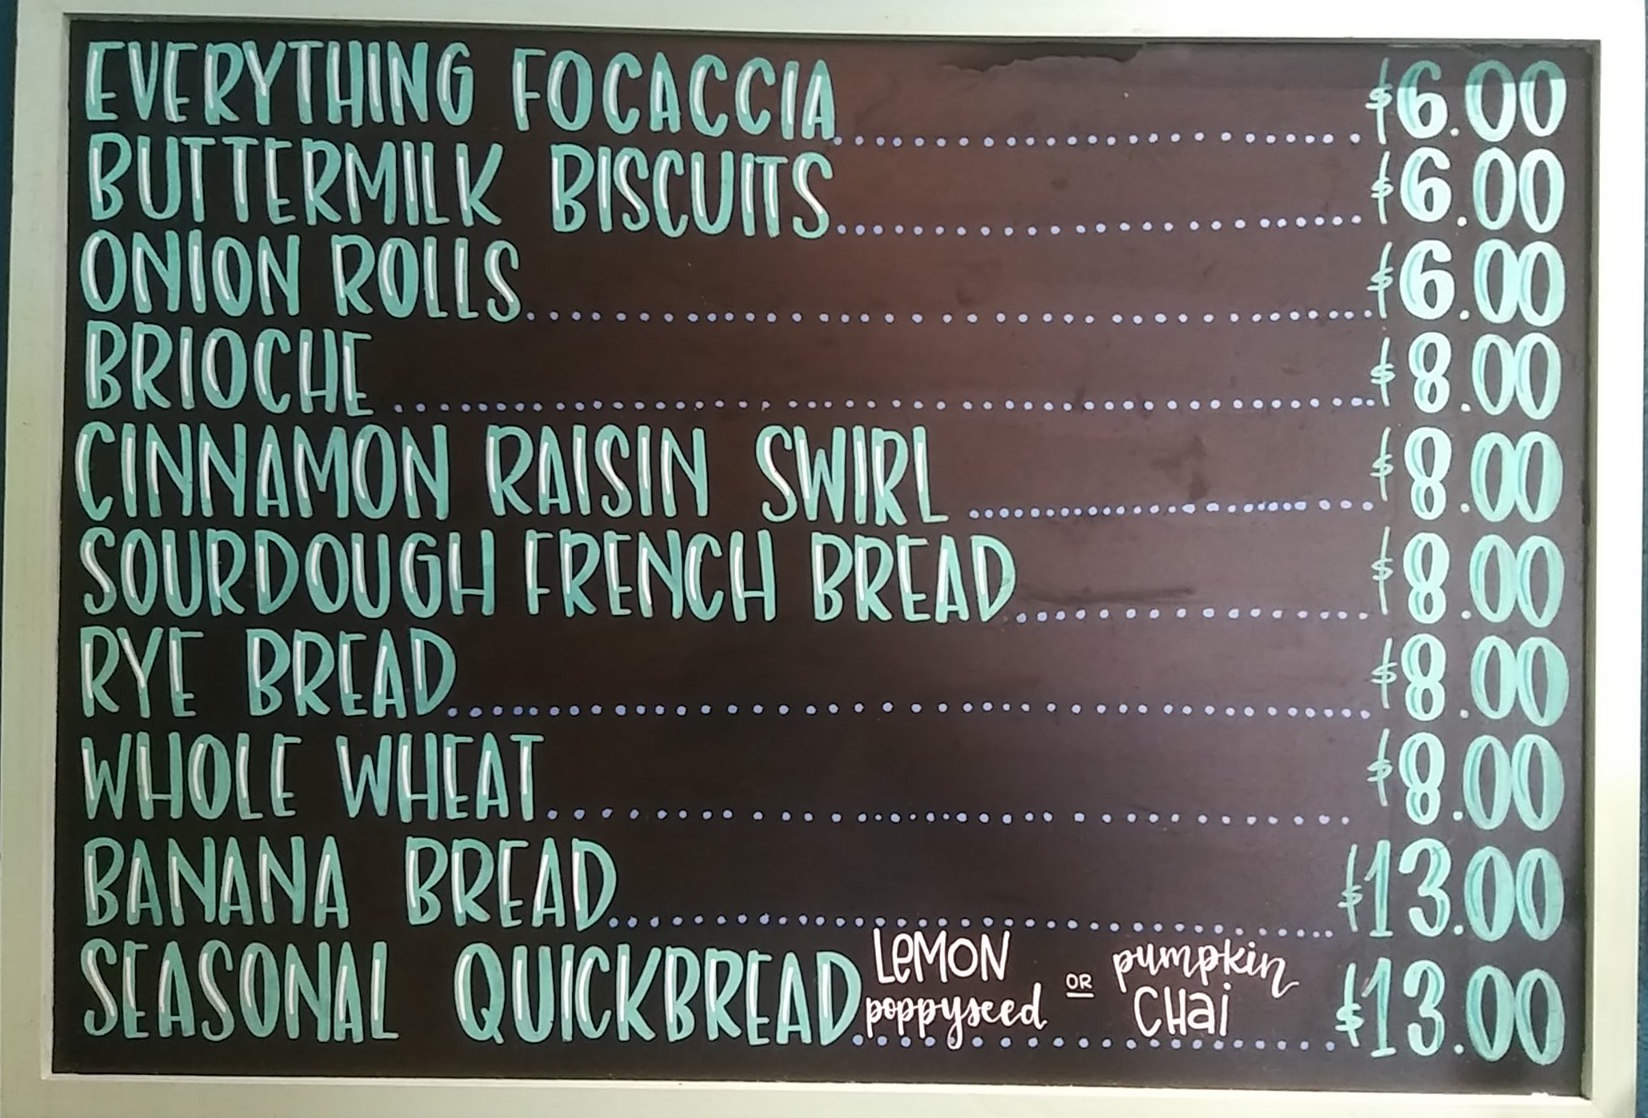 EVERYTHING FOCACCIA $6.00
BUTTERMILK BISCUITS $6.00
ONION ROLLS $6.00
BRIOCHE $8.00
CINNAMON RAISIN SWIRL $8.00
SOURDOUGH FRENCH BREAD $8.00
RYE BREAD $8.00
WHOLE WHEAT $8.00
BANANA BREAD $13.00
SEASONAL QUICKBREAD LEMON poppyseed OR pumpkin CHai $13.00